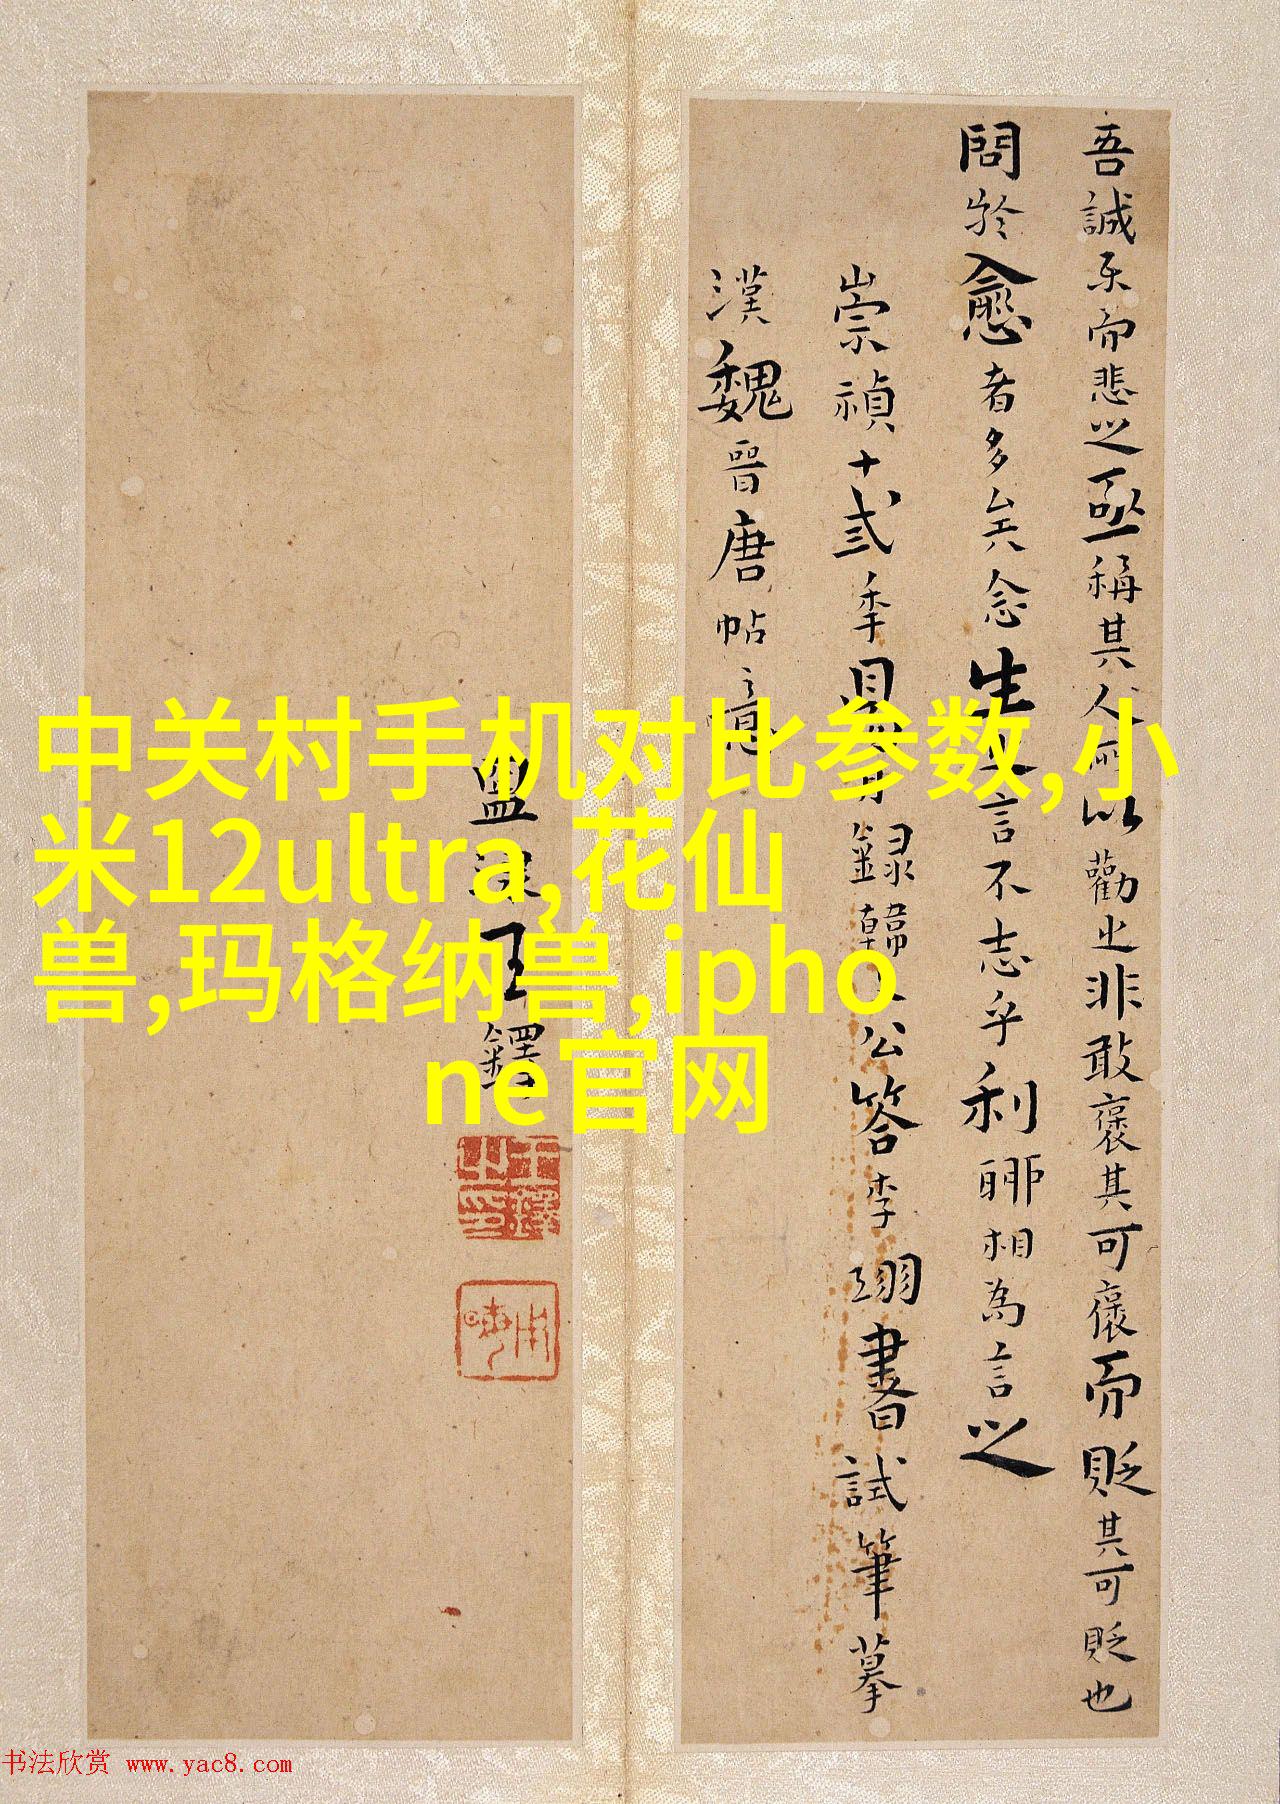 吾誠樂而悲之亟稱其人所以勸之非敢褒其可褒而貶其可貶也
問於愈者多矣念生之言不志乎利聊相為言之
崇禎十弍季月錄韓文公答李翊書試筆摹
漢魏晉唐帖意
孟津王鐸
王鐸之印
中关村手机对比参数,小
米12ultra,花仙
兽,玛格纳兽,ipho
ne官网
书法欣赏 www.yac8.com